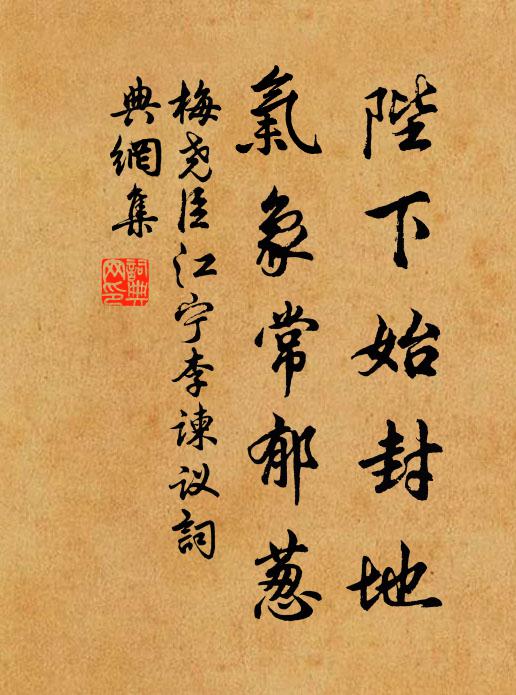 陛下始封地
氣象常郁葱
梅尧臣江宁李谏议詞
典網集
詞典
网印